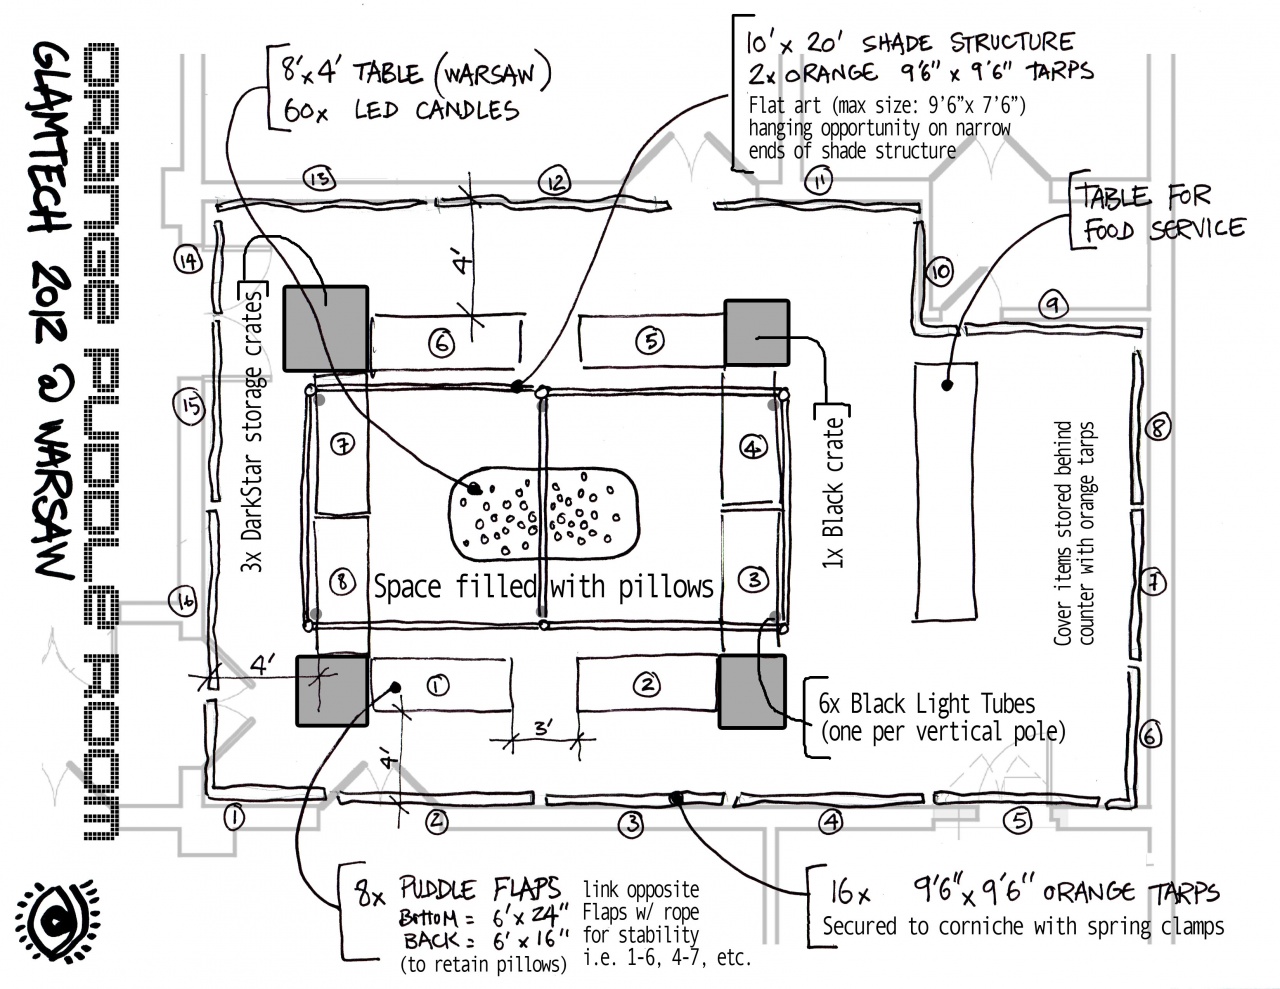 ORANGE PUDDLE ROOM
GLAMTECH 2012 @ WARSAW
8'x4' TABLE (WARSAW)
60x LED CANDLES
10' x 20' SHADE STRUCTURE
2x ORANGE 9'6" x 9'6" TARPS
Flat art (max size: 9'6"x 7'6")
hanging opportunity on narrow
ends of shade structure
TABLE FOR
FOOD SERVICE
13
12
11
14
10
9
4'
3x DarkStar storage crates
6
5
15
7
4
8
1x Black crate
Cover items stored behind
counter with orange tarps
16
8
Space filled with pillows
3
7
4'
1
2
6x Black Light Tubes
(one per vertical pole)
6
3'
4'
1
2
3
4
5
8x PUDDLE FLAPS
BOTTOM = 6' x 24"
BACK = 6' x 16"
(to retain pillows)
link opposite
Flaps w/ rope
for stability
i.e. 1-6, 4-7, etc.
16x 9'6" x 9'6" ORANGE TARPS
Secured to corniche with spring clamps